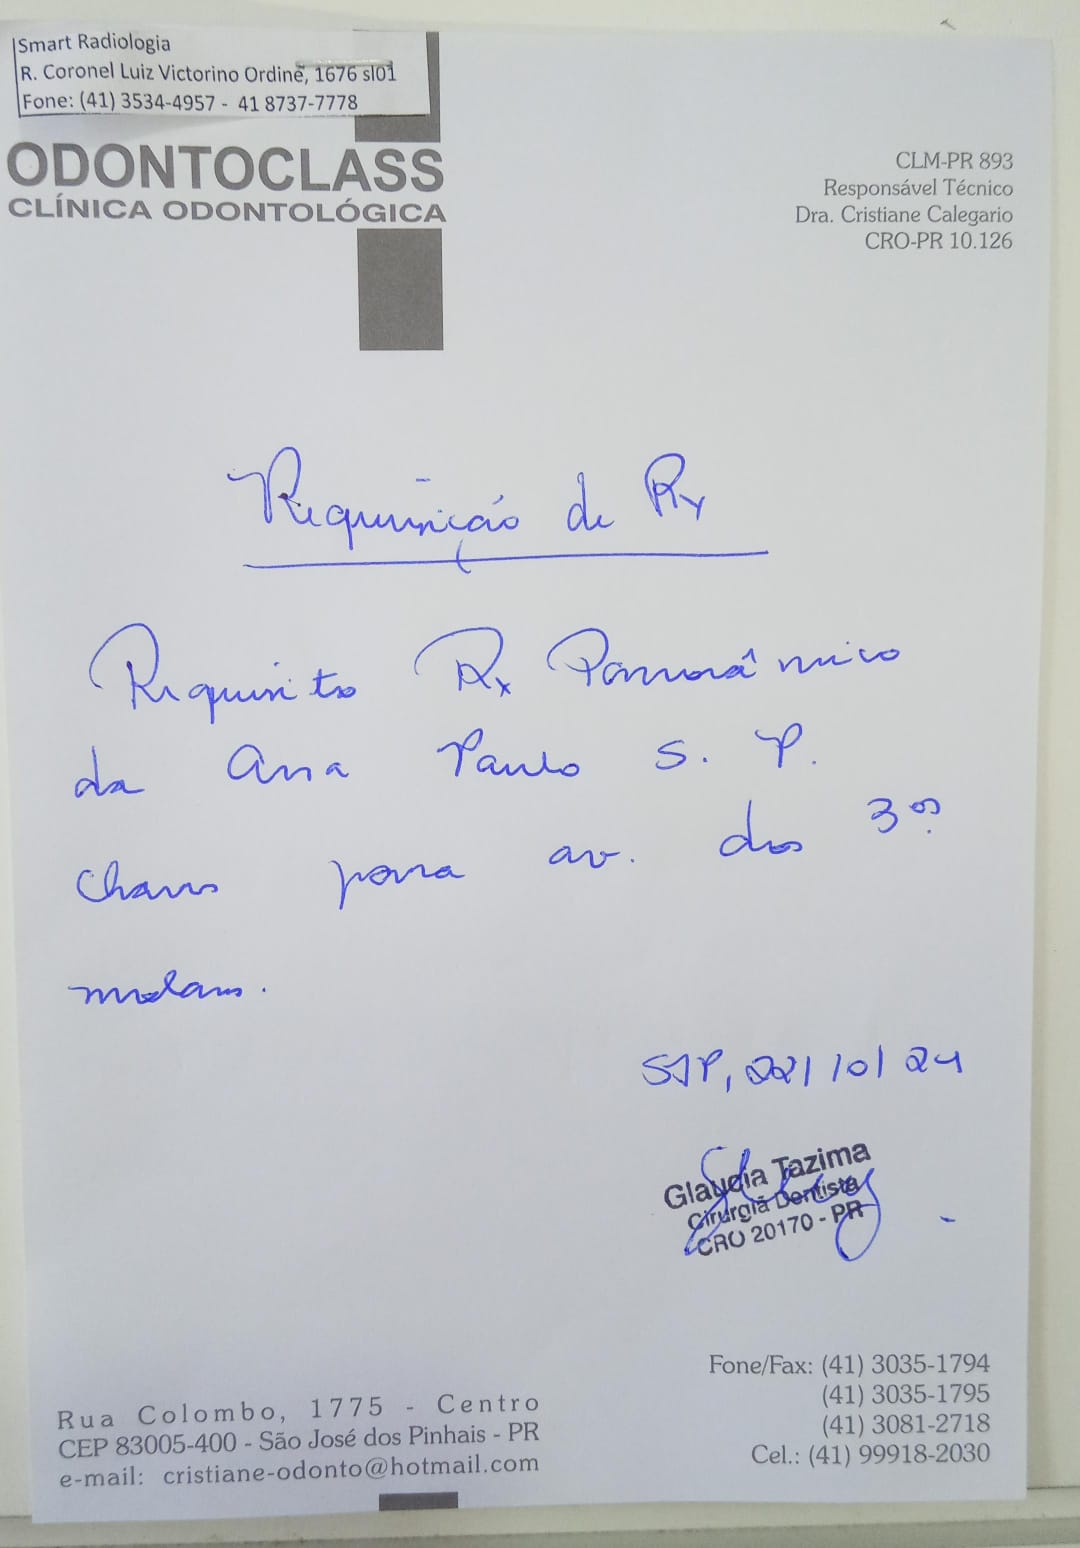 Smart Radiologia
R. Coronel Luiz Victorino Ordine, 1676 sl01
Fone: (41) 3534-4957 - 41 8737-7778
ODONTOCLASS
CLÍNICA ODONTOLÓGICA
CLM-PR 893
Responsável Técnico
Dra. Cristiane Calegario
CRO-PR 10.126
Requisição de Rx
Requisito Rx Panorâmico
da Ana Paula S. P.
Chaves para av. dos 3ºs
molares.
SJP, 22/10/24
Glaudia Tazima
Cirurgiã Dentista
CRO 20170 - PR
Fone/Fax: (41) 3035-1794
(41) 3035-1795
(41) 3081-2718
Cel.: (41) 99918-2030
Rua Colombo, 1775 - Centro
CEP 83005-400 - São José dos Pinhais - PR
e-mail: cristiane-odonto@hotmail.com